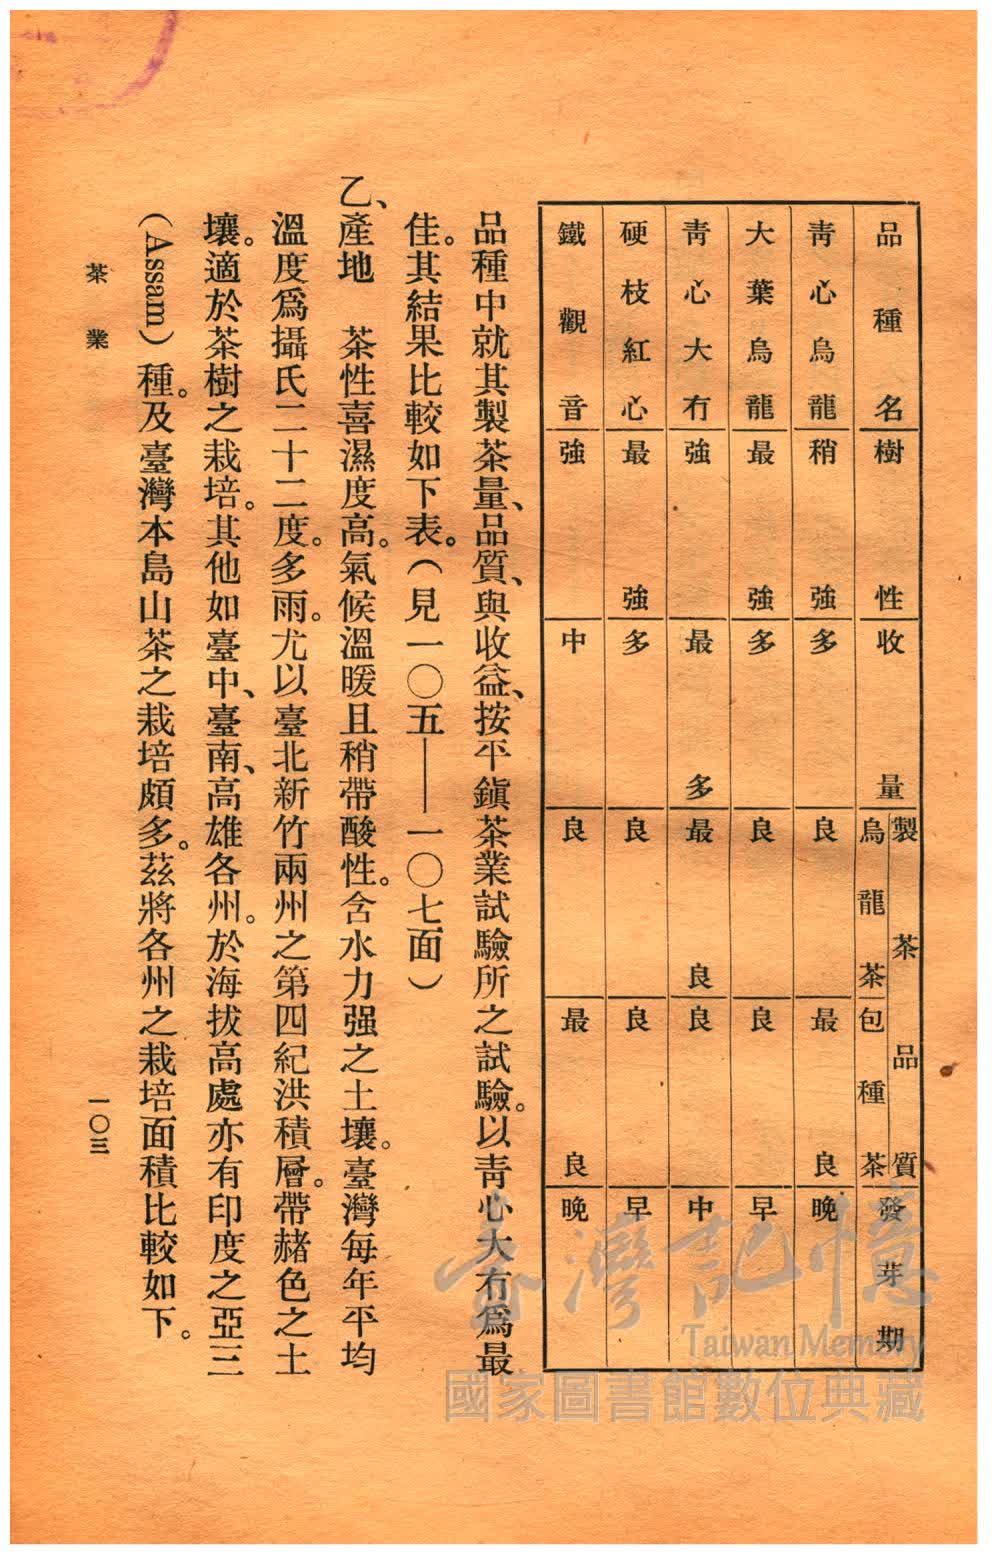 品種名 樹性 收量 製茶品質 烏龍茶 包種茶 發芽期
靑心烏龍 稍強 多 良 最良 晚
大葉烏龍 最強 多 良 良 早
靑心大冇 強 最多 最良 良 中
硬枝紅心 最強 多 良 良 早
鐵觀音 強 中 良 最良 晚
品種中就其製茶量、品質、與收益、按平鎭茶業試驗所之試驗。以靑心大冇爲最
佳。其結果比較如下表。(見一〇五——一〇七面)
乙、產地 茶性喜濕度高。氣候溫暖且稍帶酸性。含水力强之土壤。臺灣每年平均
溫度爲攝氏二十二度。多雨。尤以臺北新竹兩州之第四紀洪積層。帶赭色之土
壤。適於茶樹之栽培。其他如臺中、臺南、高雄各州。於海拔高處亦有印度之亞三
(Assam)種。及臺灣本島山茶之栽培頗多。茲將各州之栽培面積比較如下。
茶業
一〇三
臺灣記憶
Taiwan Memory
國家圖書館數位典藏